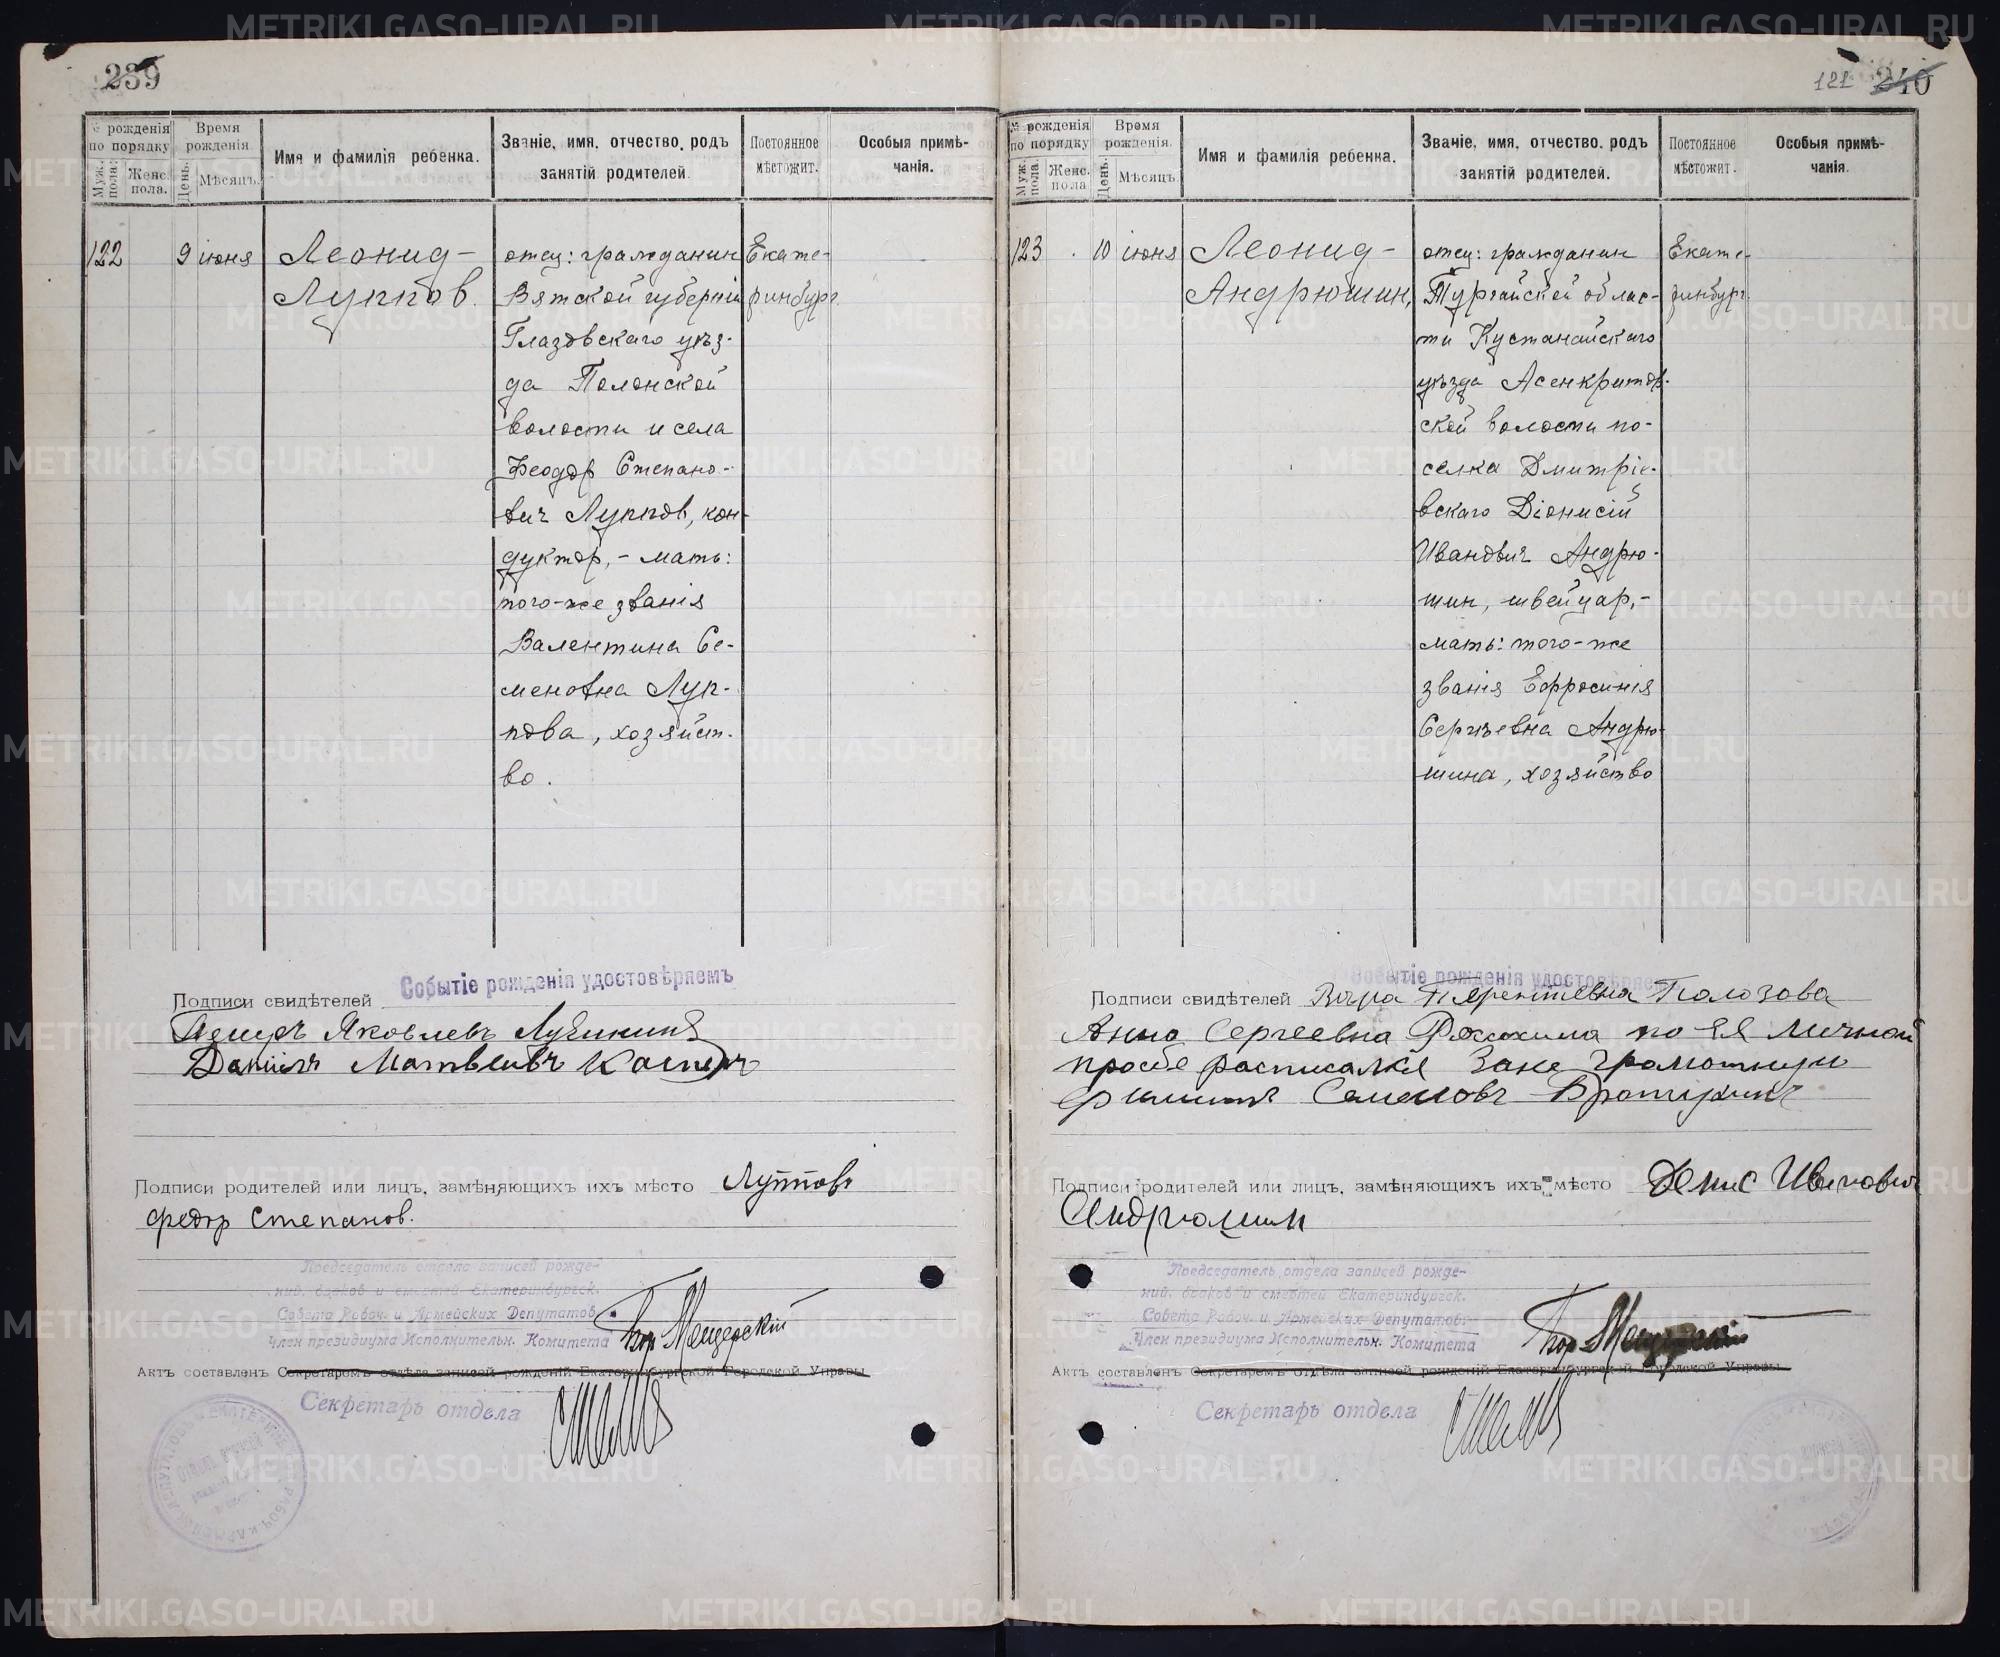 239
№ рожденія по порядку
Время рожденія.
Имя и фамилія ребенка.
Званіе, имя, отчество, родъ занятій родителей.
Постоянное мѣстожит.
Особыя примѣчанія.
Муж. пола.
Женс. пола.
День.
Мѣсяцъ.
122 9 іюня Леонид Луппов.
отец: гражданин
Вятской губерніи
Глазовскаго уѣз-
да Полонской
волости и села
Феодор Степано-
вич Луппов, кон-
дуктор, - мать:
того-же званія
Валентина Се-
меновна Луп-
пова, хозяйст-
во.
Екате-
ринбург.
Событіе рожденія удостовѣряемъ
Подписи свидѣтелей
Петръ Яковлевъ
Даниилъ Матвѣевъ
Подписи родителей или лицъ, замѣняющихъ ихъ мѣсто Лупповъ
Федор Степанов.
Председатель отдела записей рожде-
ний, браков и смертей Екатеринбургск.
Совета Рабоч. и Армейских Депутатов
Член президиума Исполнительн. Комитета
Актъ составленъ Секретаремъ отдѣла записей рожденій Екатеринбургской Городской Управы
Секретарь отдела
121 240
№ рожденія по порядку
Время рожденія.
Имя и фамилія ребенка.
Званіе, имя, отчество, родъ занятій родителей.
Постоянное мѣстожит.
Особыя примѣчанія.
Муж. пола.
Женс. пола
День.
Мѣсяцъ
123 10 іюня Леонид Андрюшин,
отец: гражданин
Тургайской облас-
ти Кустанайскаго
уѣзда Асенкритов-
ской волости по-
селка Дмитріе-
вскаго Діонисій
Иванович Андрю-
шин, швейцар, -
мать: того-же
званія Ефросинія
Сергѣевна Андрю-
шина, хозяйство
Екате-
ринбург.
Событіе рожденія удостовѣряемъ
Подписи свидѣтелей Вѣра Полозова
Анна Сергеевна по ея личной
просбе расписался
Семеновъ
Подписи родителей или лицъ, замѣняющихъ ихъ мѣсто Денис Иванович
Андрюшин
Председатель отдела записей рожде-
ний, браков и смертей Екатеринбургск.
Совета Рабоч. и Армейских Депутатов
Член президиума Исполнительн. Комитета
Актъ составленъ Секретаремъ отдѣла записей рожденій Екатеринбургской Городской Управы
Секретарь отдела
METRIKI.GASO-URAL.RU